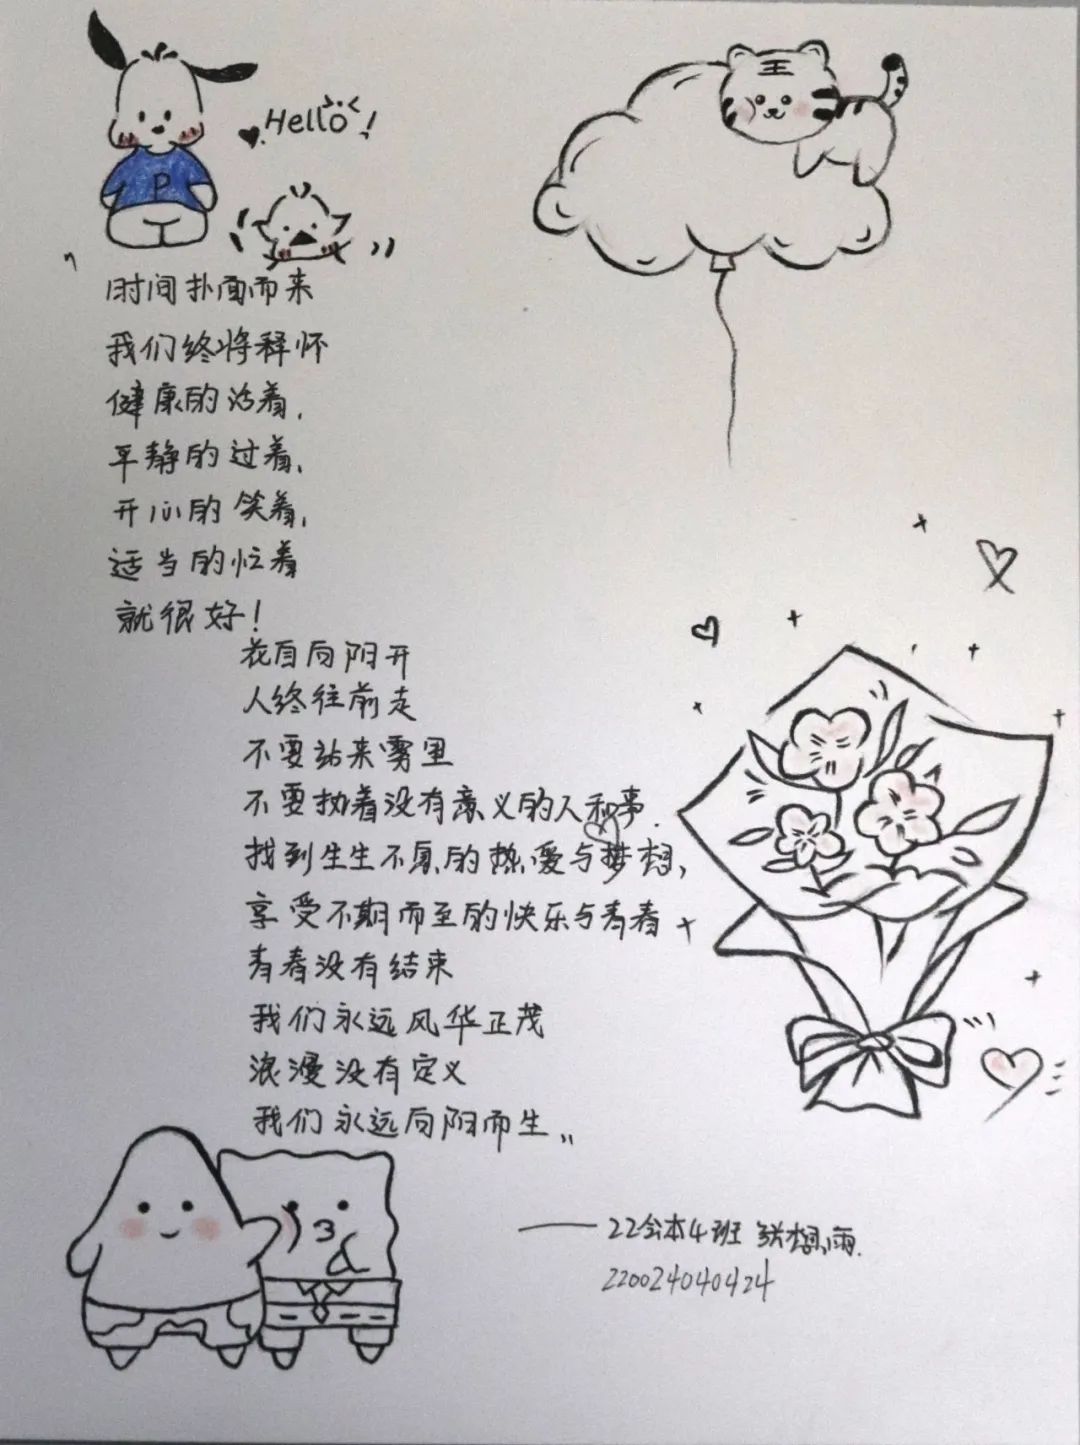 Hello!
王
P
"时间扑面而来
我们终将释怀
健康的活着,
平静的过着,
开心的笑着,
适当的忙着
就很好!
花自向阳开
人终往前走
不要站来雾里
不要执着没有意义的人和事.
找到生生不息的热爱与梦想,
享受不期而至的快乐与青春
青春没有结束
我们永远风华正茂
浪漫没有定义
我们永远向阳而生"
——22会本4班 张想雨.
220024040424